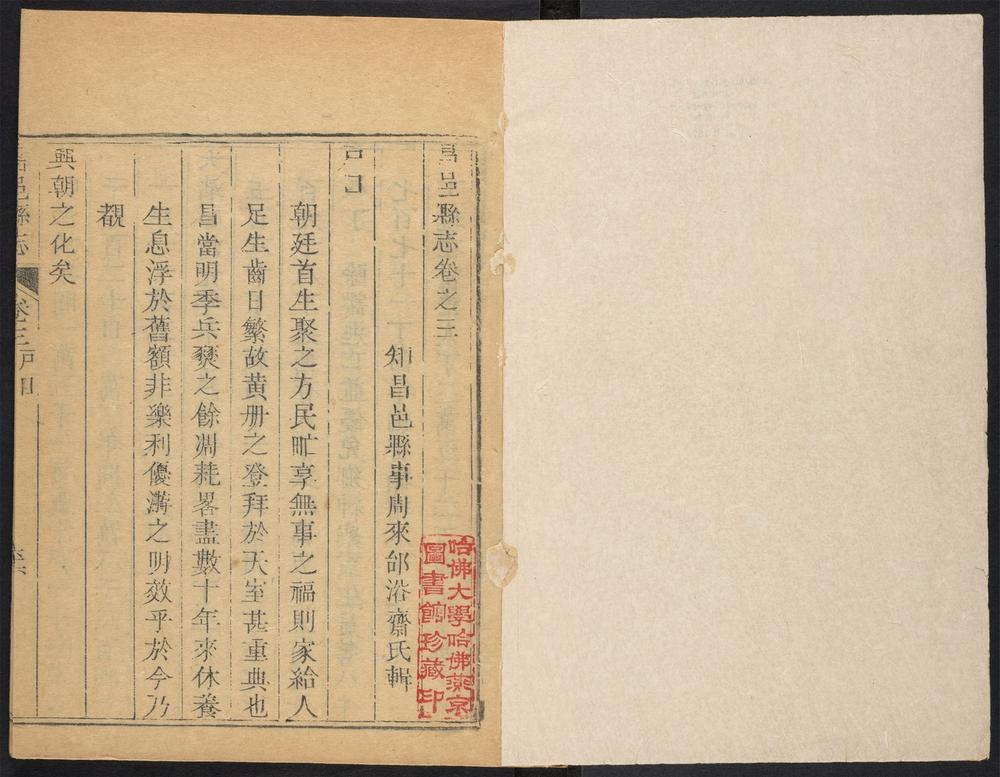 昌邑縣志卷之三
知昌邑縣事周來邰浴齋氏輯
朝廷首生聚之方民甿享無事之福則家給人
足生齒日繁故黃册之登拜於天室甚重典也
昌當明季兵燹之餘凋耗畧盡數十年來休養
生息浮於舊額非樂利優游之明效乎於今乃
覩
興朝之化矣
邑縣志 卷三戶田
哈佛大學哈佛燕京
圖書館珍藏印